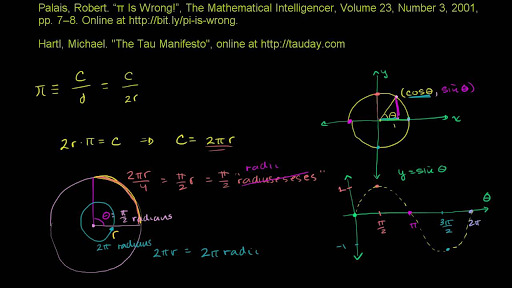 Palais, Robert. "π Is Wrong!", The Mathematical Intelligencer, Volume 23, Number 3, 2001,
pp. 7–8. Online at http://bit.ly/pi-is-wrong.
Hartl, Michael. "The Tau Manifesto", online at http://tauday.com
π ≡ C/d = C/2r
2r·π = C ⇒ C = 2πr
2πr/4 = π/2 r = π/2 "radiuseseses"
radii
θ = π/2 radians
r
2π radians
2πr = 2π radii
y
(cosθ, sinθ)
θ
1
x
y = sinθ
1
θ
π/2
π
3π/2
2π
-1